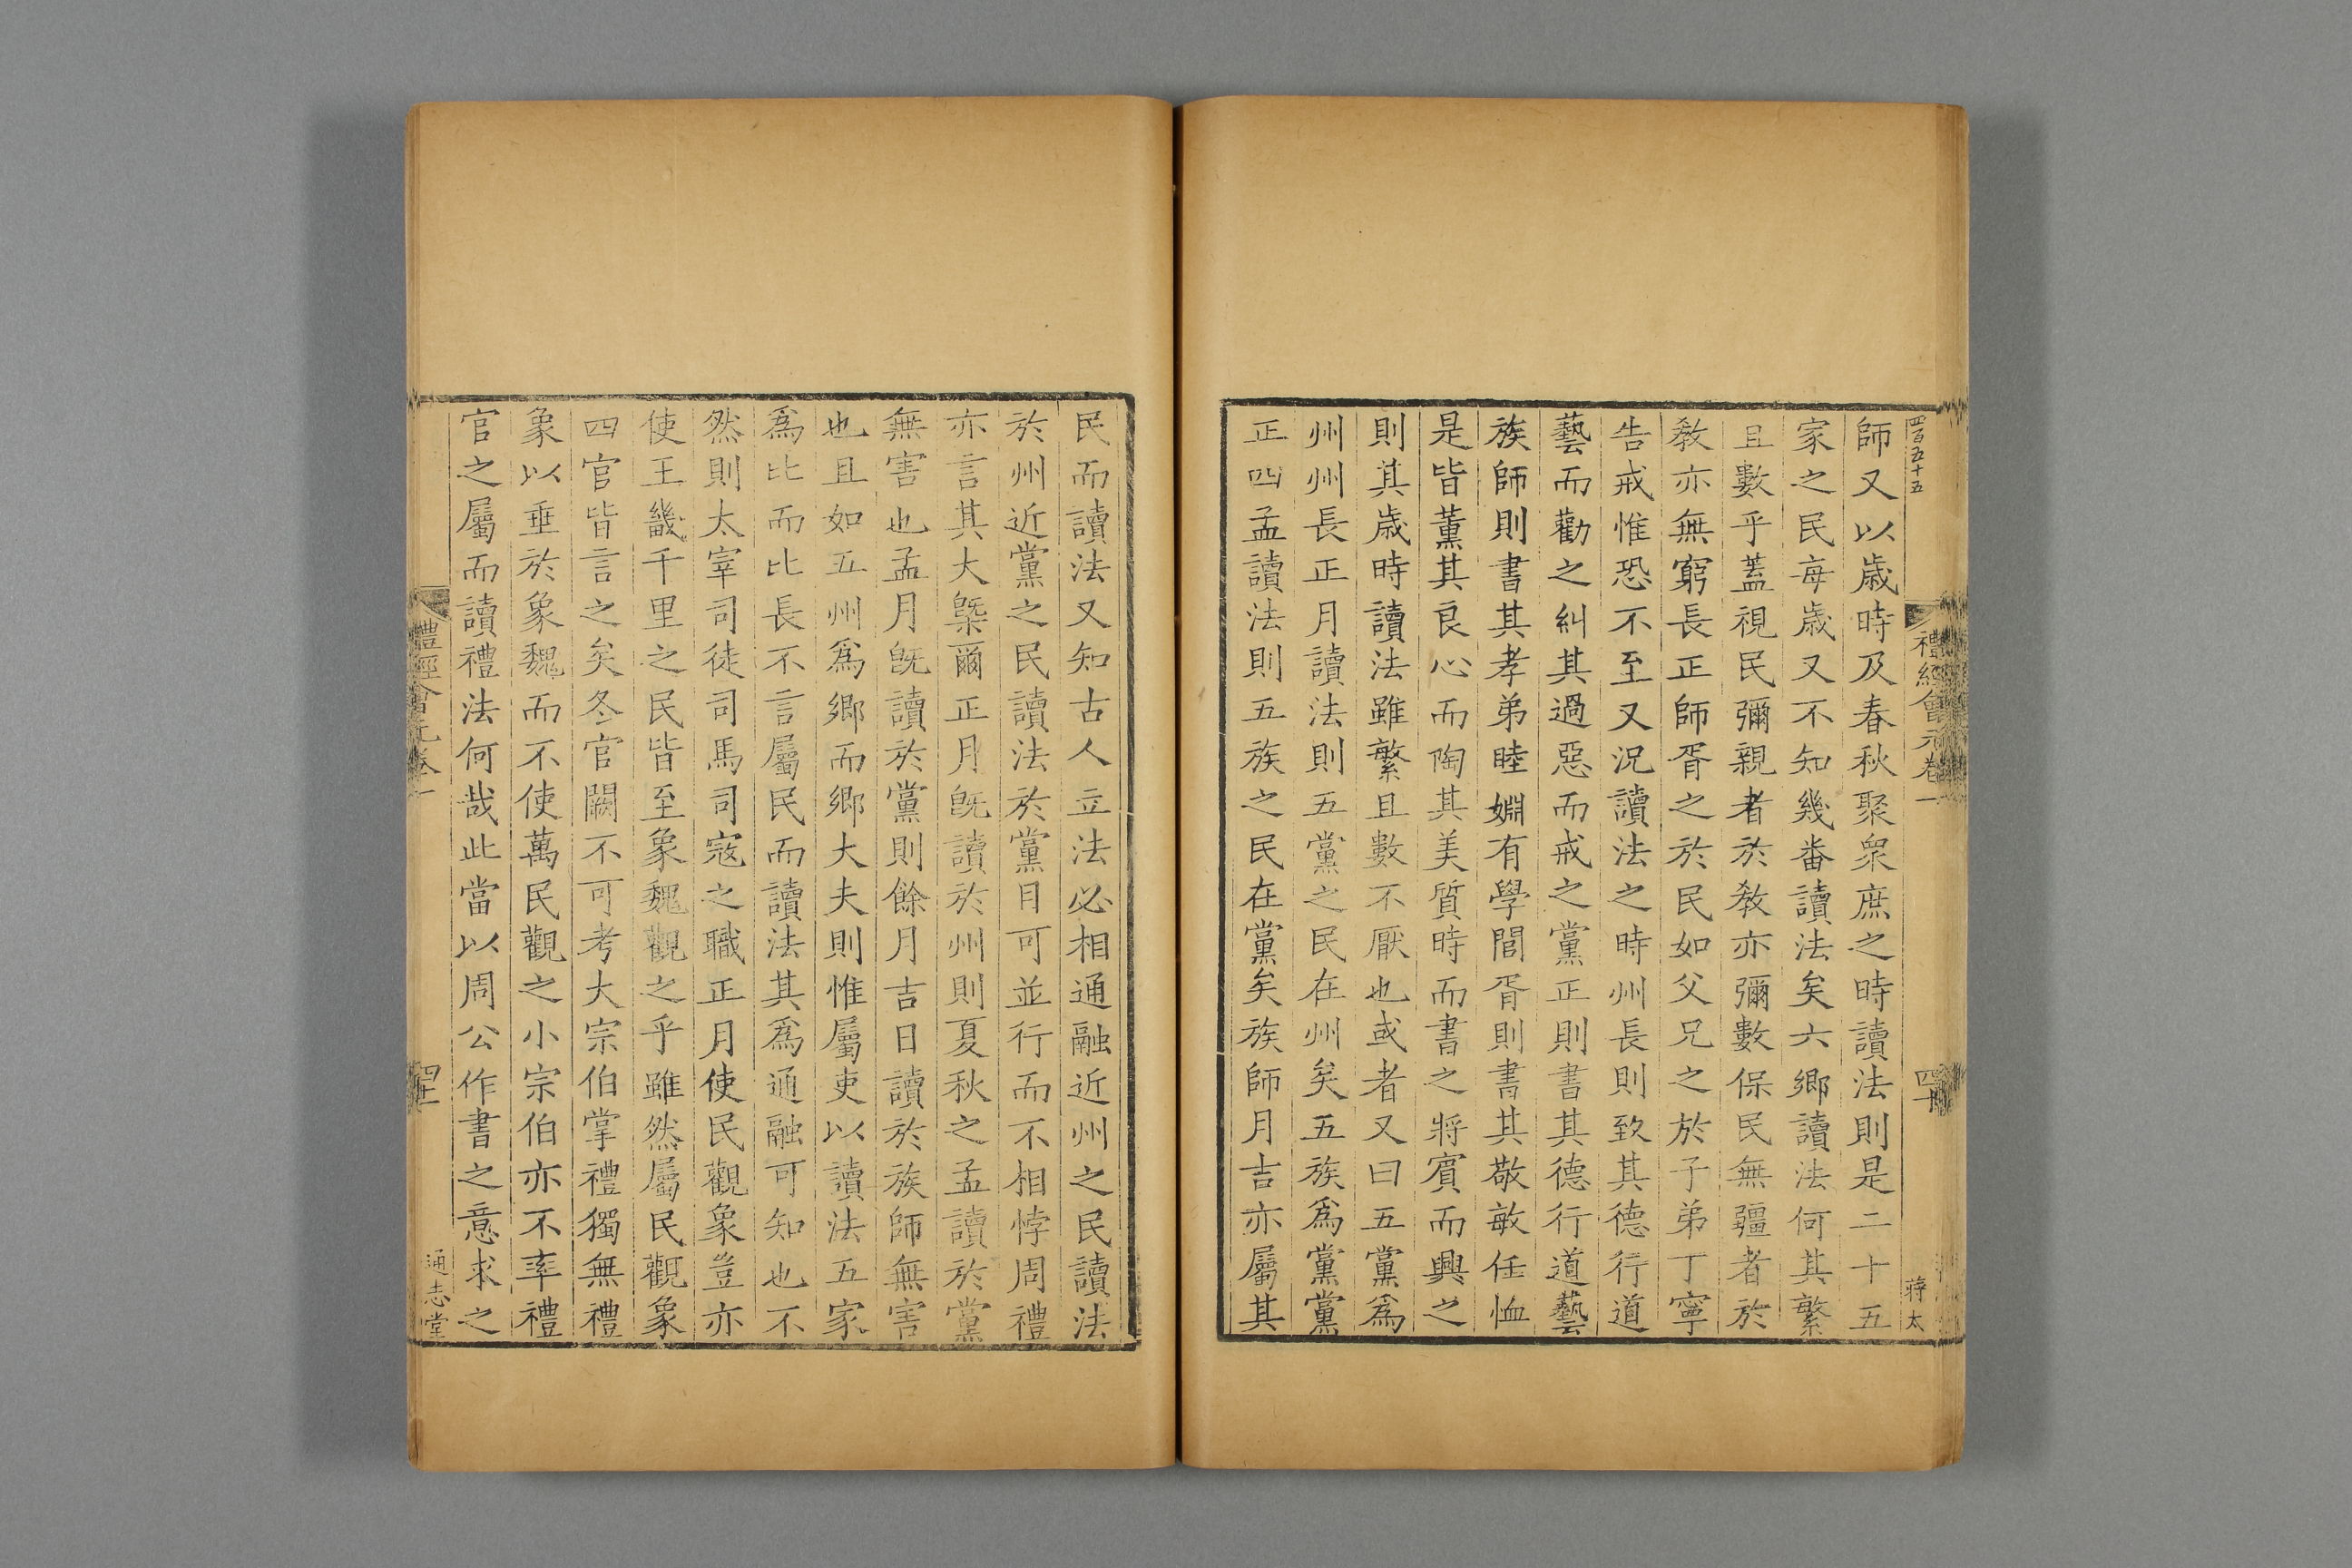 四百五十五
禮經會元卷一
四十
蔣太
師又以歲時及春秋聚衆庶之時讀法則是二十五
家之民每歲又不知幾番讀法矣六鄉讀法何其繁
且數乎蓋視民彌親者於敎亦彌數保民無疆者於
敎亦無窮長正師胥之於民如父兄之於子弟丁寧
告戒惟恐不至又況讀法之時州長則致其德行道
藝而勸之糾其過惡而戒之黨正則書其德行道藝
族師則書其孝弟睦婣有學閭胥則書其敬敏任恤
是皆薰其良心而陶其美質時而書之將賓而興之
則其歲時讀法雖繁且數不厭也或者又曰五黨爲
州州長正月讀法則五黨之民在州矣五族爲黨黨
正四孟讀法則五族之民在黨矣族師月吉亦屬其
民而讀法又知古人立法必相通融近州之民讀法
於州近黨之民讀法於黨自可並行而不相悖周禮
亦言其大槩爾正月旣讀於州則夏秋之孟讀於黨
無害也孟月旣讀於黨則餘月吉日讀於族師無害
也且如五州爲鄉而鄉大夫則惟屬吏以讀法五家
爲比而比長不言屬民而讀法其爲通融可知也不
然則太宰司徒司馬司寇之職正月使民觀象豈亦
使王畿千里之民皆至象魏觀之乎雖然屬民觀象
四官皆言之矣冬官闕不可考大宗伯掌禮獨無禮
象以垂於象魏而不使萬民觀之小宗伯亦不率禮
官之屬而讀禮法何哉此當以周公作書之意求之
禮經會元卷一
通志堂